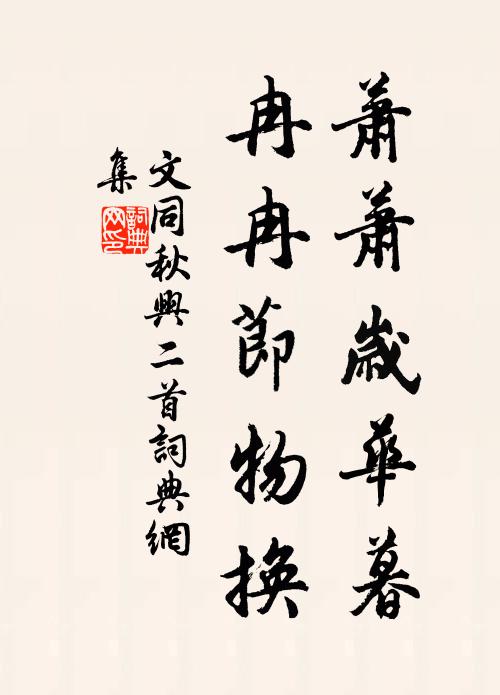 蕭蕭歲華暮
冉冉節物換
文同秋興二首詞典網
集
詞典网印